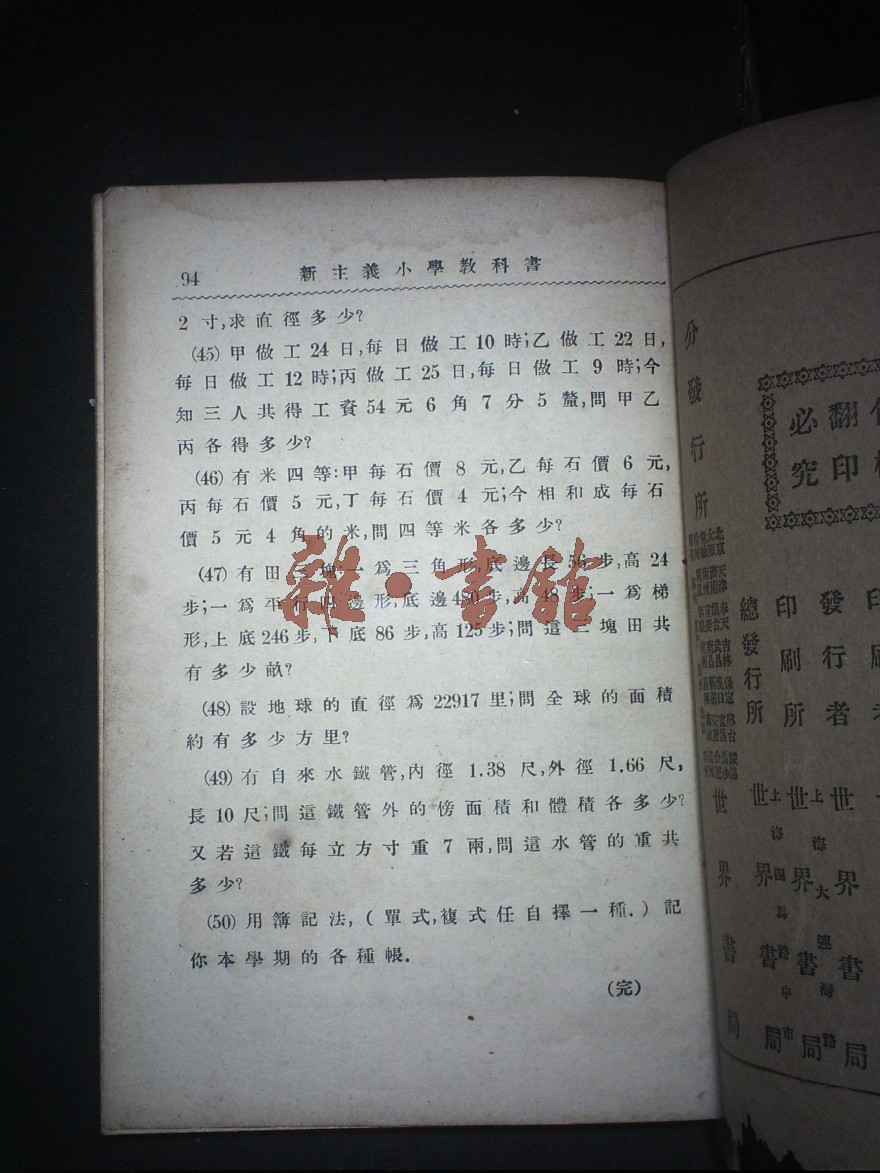 94 新主義小學教科書
2寸,求直徑多少?
(45) 甲做工24日,每日做工10時;乙做工22日,
每日做工12時;丙做工25日,每日做工9時;今
知三人共得工資54元6角7分5釐,問甲乙
丙各得多少?
(46) 有米四等:甲每石價8元,乙每石價6元,
丙每石價5元,丁每石價4元;今相和成每石
價5元4角的米,問四等米各多少?
(47) 有田三塊:一爲三角形,底邊長56步,高24
步;一爲平行四邊形,底邊480步,高48步;一爲梯
形,上底246步,下底86步,高125步;問這三塊田共
有多少畝?
(48) 設地球的直徑爲22917里;問全球的面積
約有多少方里?
(49) 有自來水鐵管,內徑1.38尺,外徑1.66尺,
長10尺;問這鐵管外的傍面積和體積各多少?
又若這鐵每立方寸重7兩,問這水管的重共
多少?
(50) 用簿記法,(單式,複式任自擇一種.)記
你本學期的各種帳.
(完)
雜·書館
翻印
必究
印刷所
發行者
總發行所
分發行所
上海大連灣路
世界書局
上海四馬路中市
世界書局
世界書局